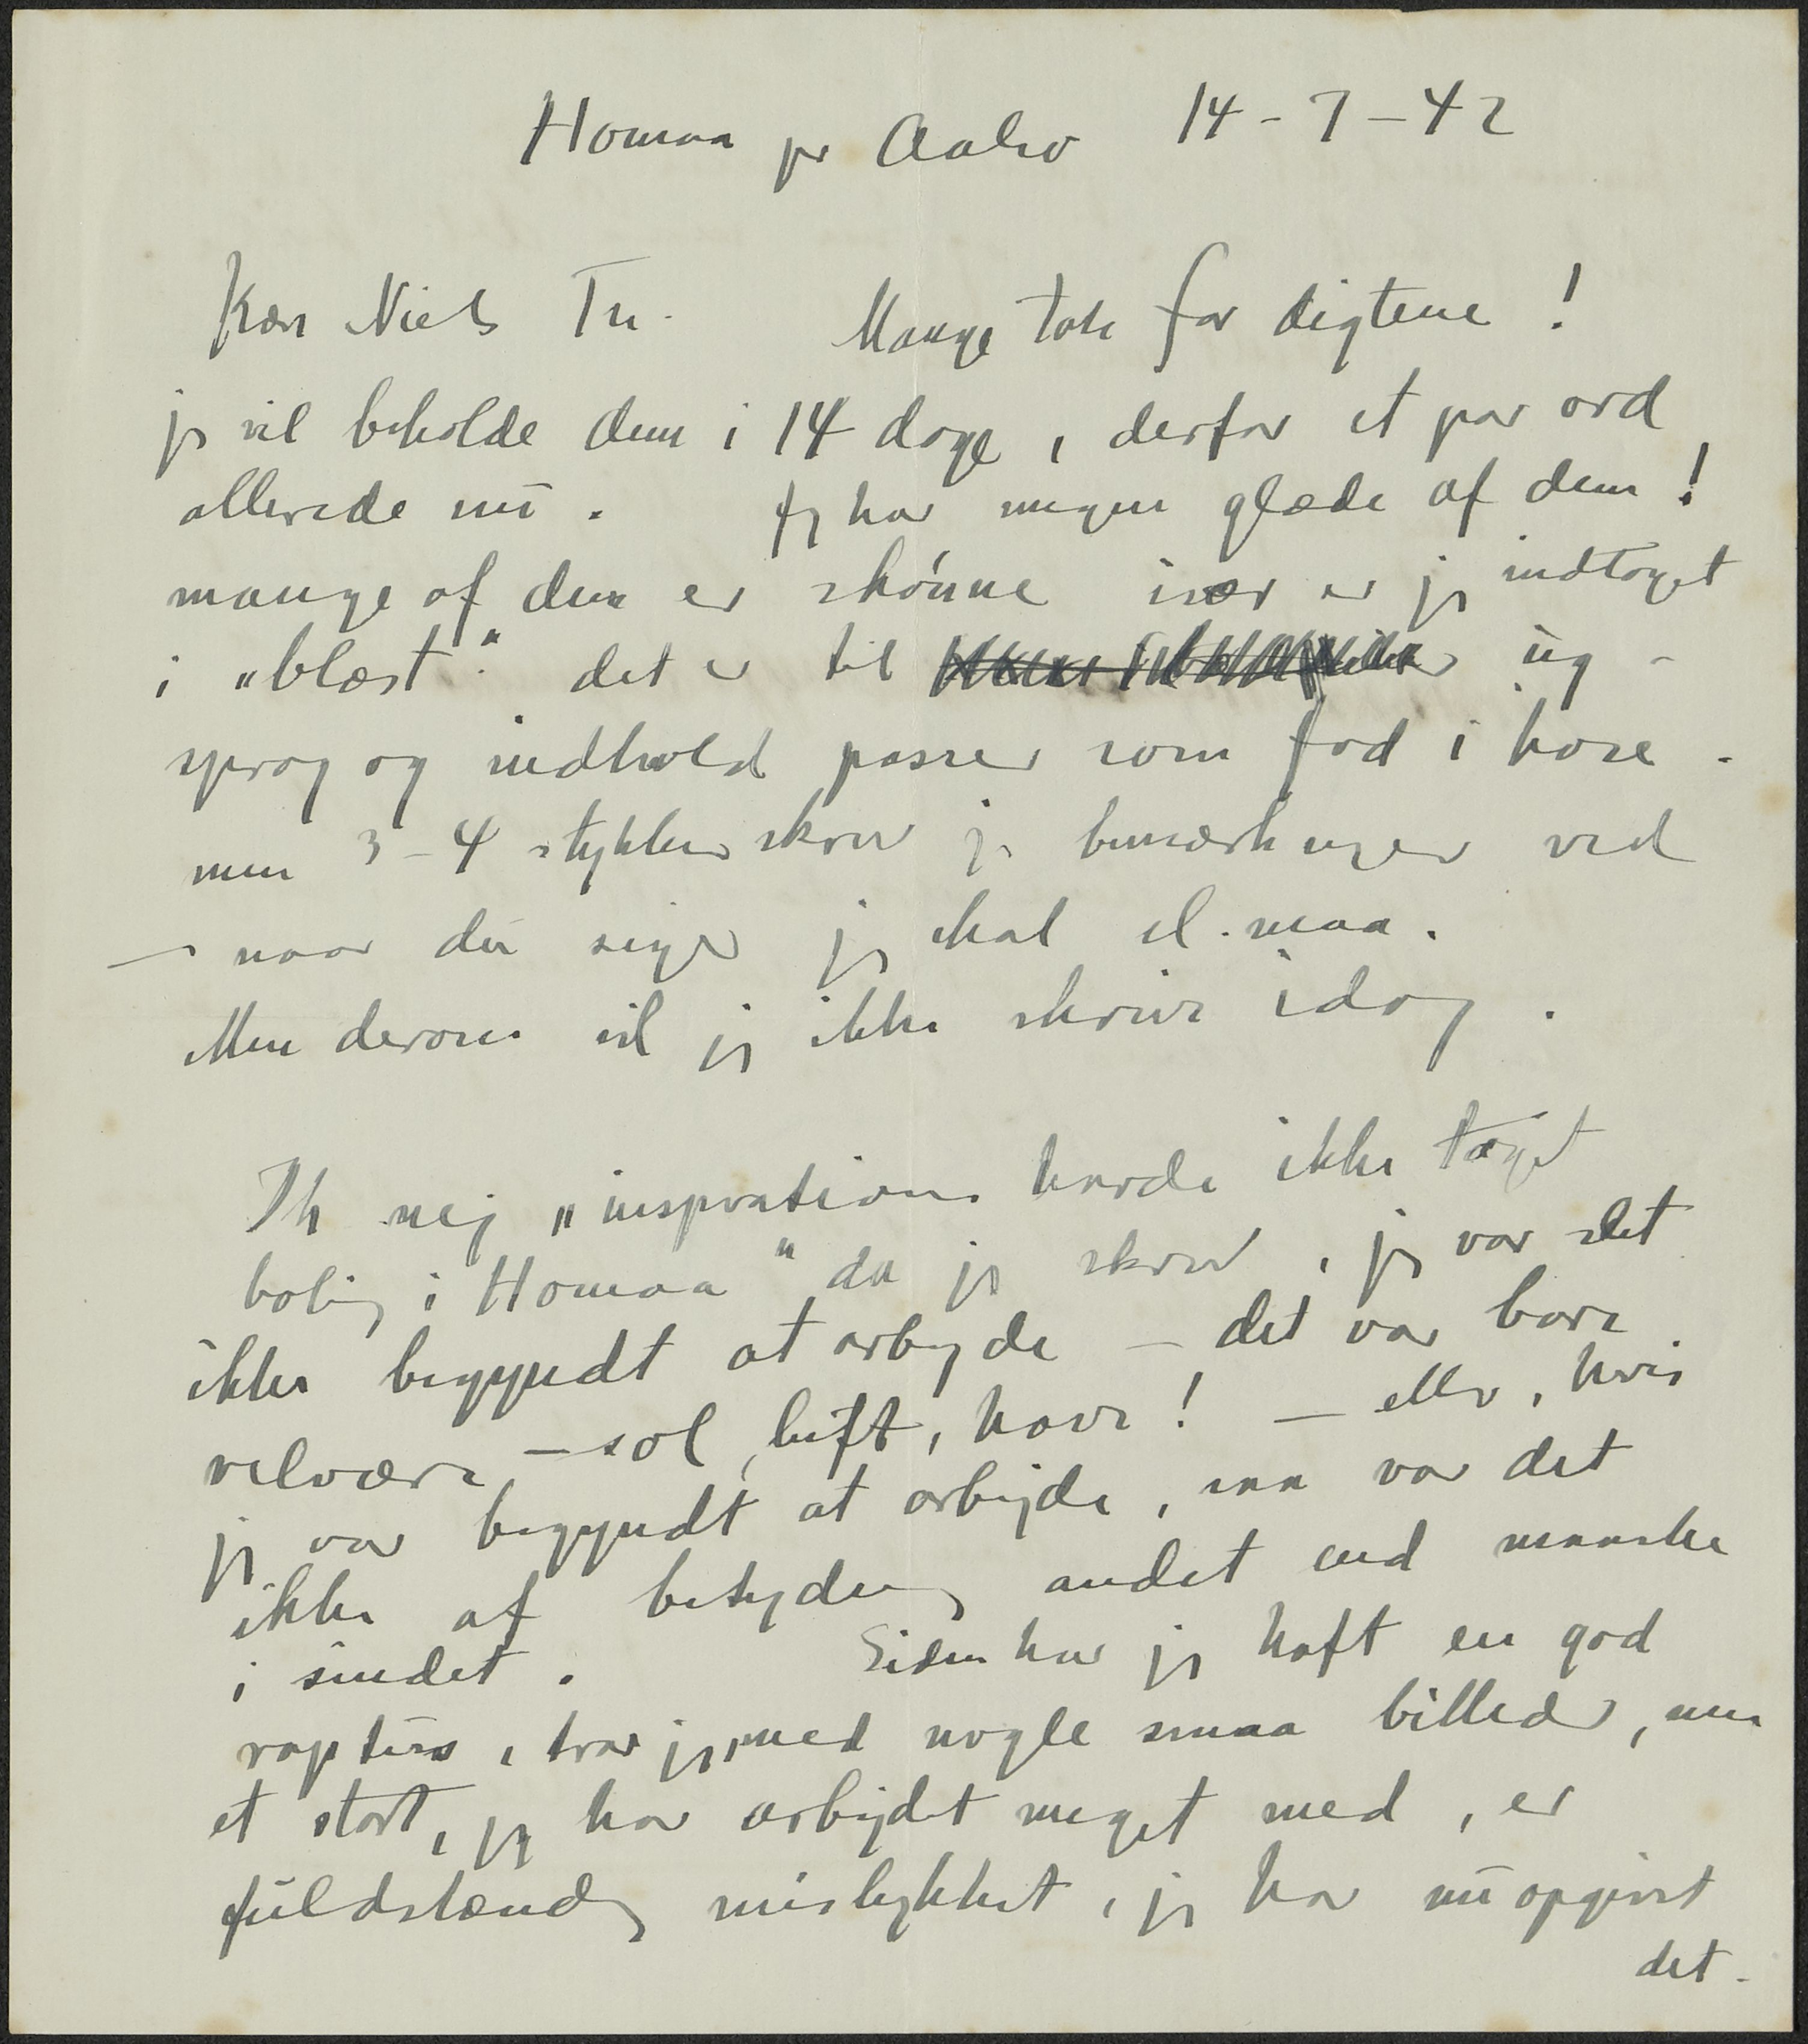 Homaa pr Aalsø 14-7-42
Kære Niels Th. Mange tak for digtene!
jeg vil beholde dem i 14 dage, derfor et par ord
allerede nu. Jeg har megen glæde af dem!
mange af dem er skønne især er jeg indtaget
i "blæst". det er til ug -
sprog og indhold passer som fod i hose.
men 3-4 stykker skrev jeg bemærkninger ved
— naar du siger jeg skal el. maa.
Men derom vil jeg ikke skrive idag.
Ih nej "inspirationen havde ikke taget
bolig i Homaa" da jeg skrev, jeg var slet
ikke begyndt at arbejde — det var bare
velvære — sol, luft, have! — eller, hvis
jeg var begyndt at arbejde, saa var det
ikke af betydning andet end maaske
i sindet. Siden har jeg haft en god
raptus, tror jeg, med nogle smaa billeder, men
et stort, jeg har arbejdet meget med, er
fuldstændig mislykket, jeg har nu opgivet
det.